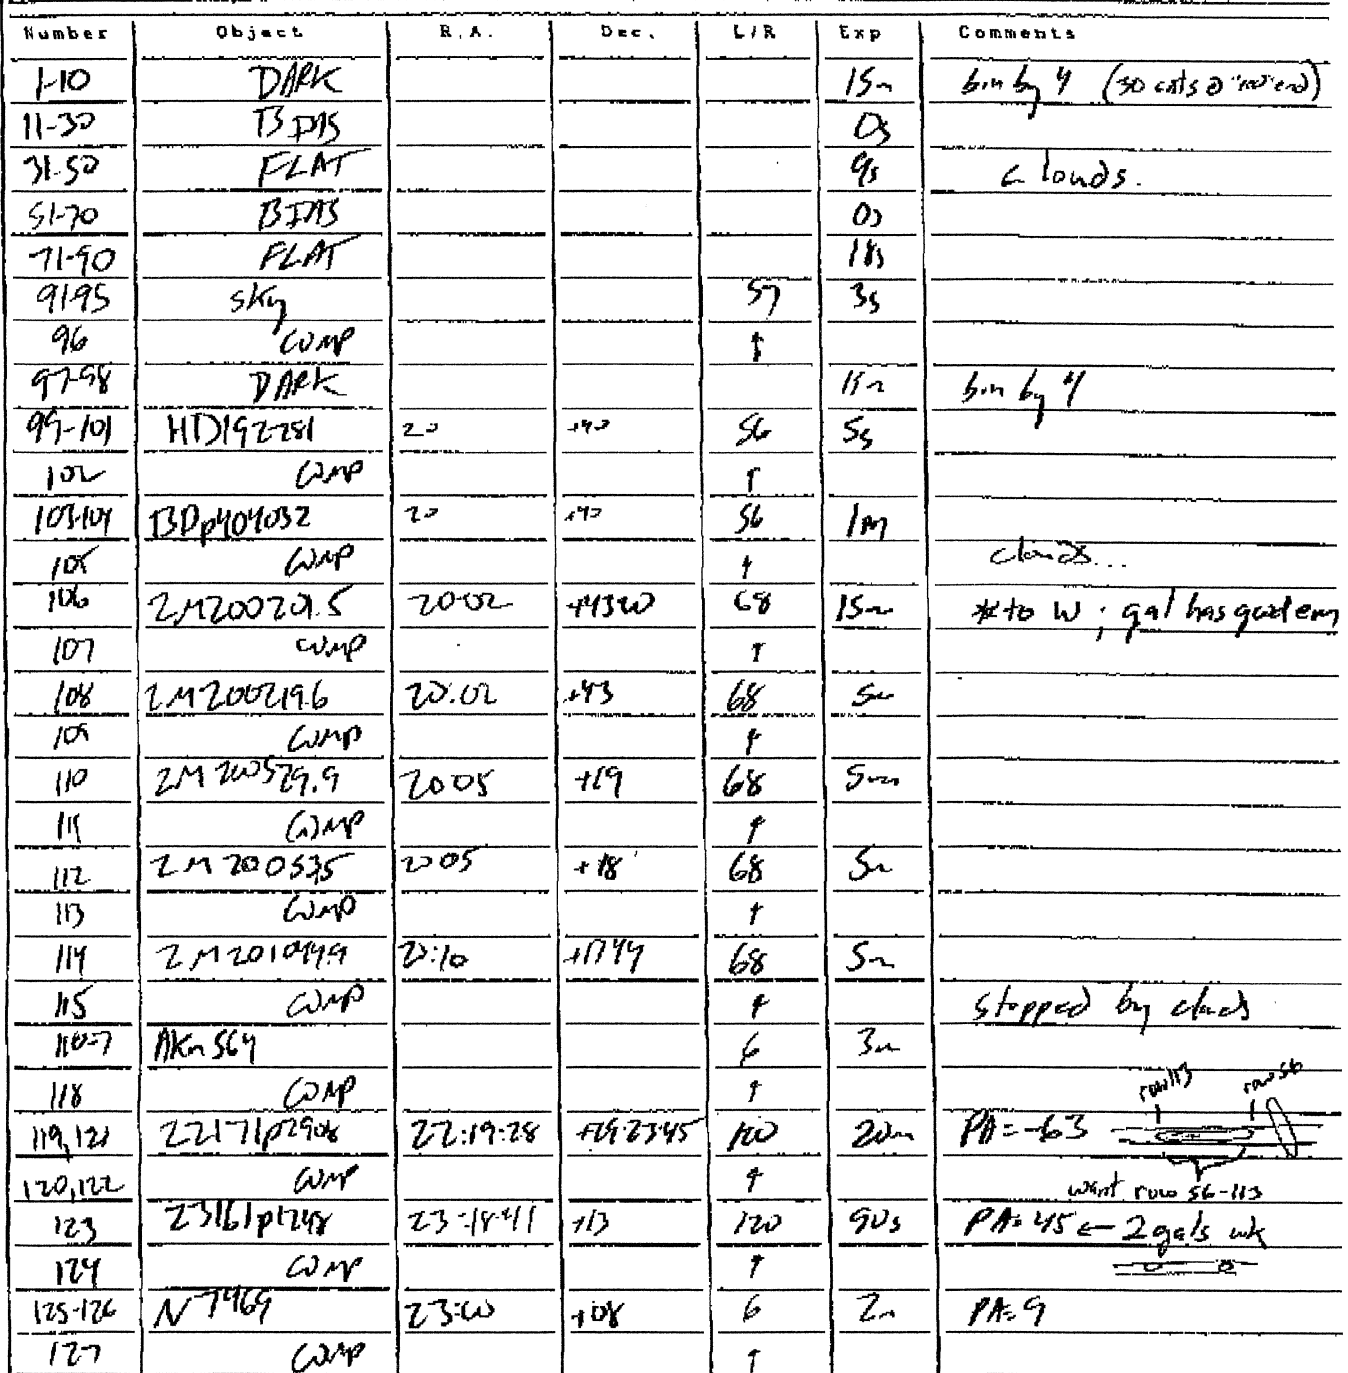 Number Object R.A. Dec. L/R Exp Comments
1-10 DARK 15m bin by 4 (30 cnts @ "red" end)
11-30 BIAS 0s
31-50 FLAT 9s clouds.
51-70 BIAS 0s
71-90 FLAT 18s
91-95 sky 57 3s
96 COMP ↑
97-98 DARK 15m bin by 4
99-101 HD192281 20 +40 56 5s
102 COMP ↑
103-104 BDp404032 20 +40 56 1m
105 COMP ↑ clouds...
106 2M200201.5 20:02 +4320 68 15m * to W ; gal has good em
107 COMP ↑
108 2M200219.6 20:02 +43 68 5m
109 COMP ↑
110 2M200529.9 20 05 +19 68 5m
111 COMP ↑
112 2M200535 20 05 +18 68 5m
113 COMP ↑
114 2M201049.9 20:10 +1744 68 5m
115 COMP ↑ stopped by clouds
116-7 AKn564 6 3m
118 COMP ↑ row 113 row 56
119,121 22171p2908 22:19:28 +29:23:45 100 20m PA=-63
120,122 COMP ↑ want row 56-113
123 23161p1248 23:18:41 +13 120 90s PA=45 ← 2 gals wk
124 COMP ↑
125-126 N7469 23:00 +08 6 2m PA=9
127 COMP ↑